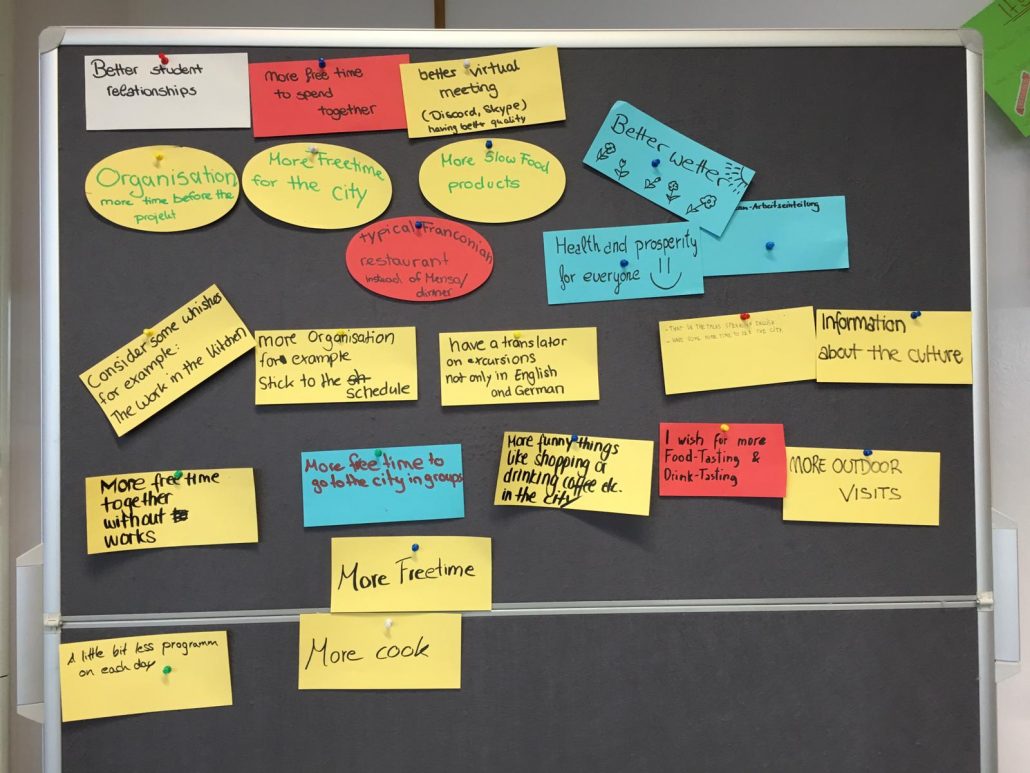 Better student
relationships
More free time
to spend
together
better virtual
meeting
(Discord, Skype)
having better quality
Organisation
more time before the
projekt
More Freetime
for the city
More Slow Food
products
Better Wetter
-Arbeitseinteilung
typical Franconian
restaurant
instead of Mensa/
dinner
Health and prosperity
for everyone
Consider some whishes
for example:
The work in the kitchen
more Organisation
for example
Stick to the schedule
have a translator
on excursions
not only in English
and German
Information
about the culture
More free time
together
without
works
More free time to
go to the city in groups
More funny things
like shopping or
drinking coffee etc.
in the city
I wish for more
Food-Tasting &
Drink-Tasting
MORE OUTDOOR
VISITS
More Freetime
More cook
A little bit less programm
on each day